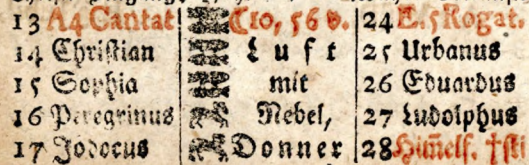 13 A4 Cantat. ☾10, 56 v. 24 E. 5 Rogat.
14 Christian Luft 25 Urbanus
15 Sophia mit 26 Eduardus
16 Peregrinus Nebel, 27 Ludolphus
17 Jodocus Donner 28 Him̃elf.